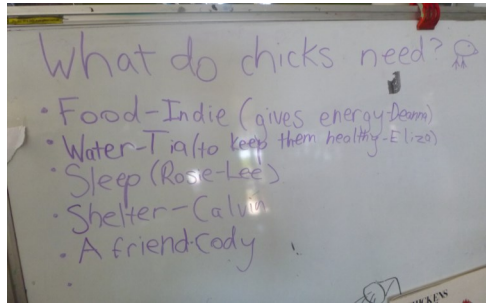 What do chicks need?
• Food-Indie (gives energy-Deanna)
• Water-Tia (to keep them healthy-Eliza)
• Sleep (Rosie-Lee)
• Shelter-Calvin
• A friend-Cody
•
CHICKENS